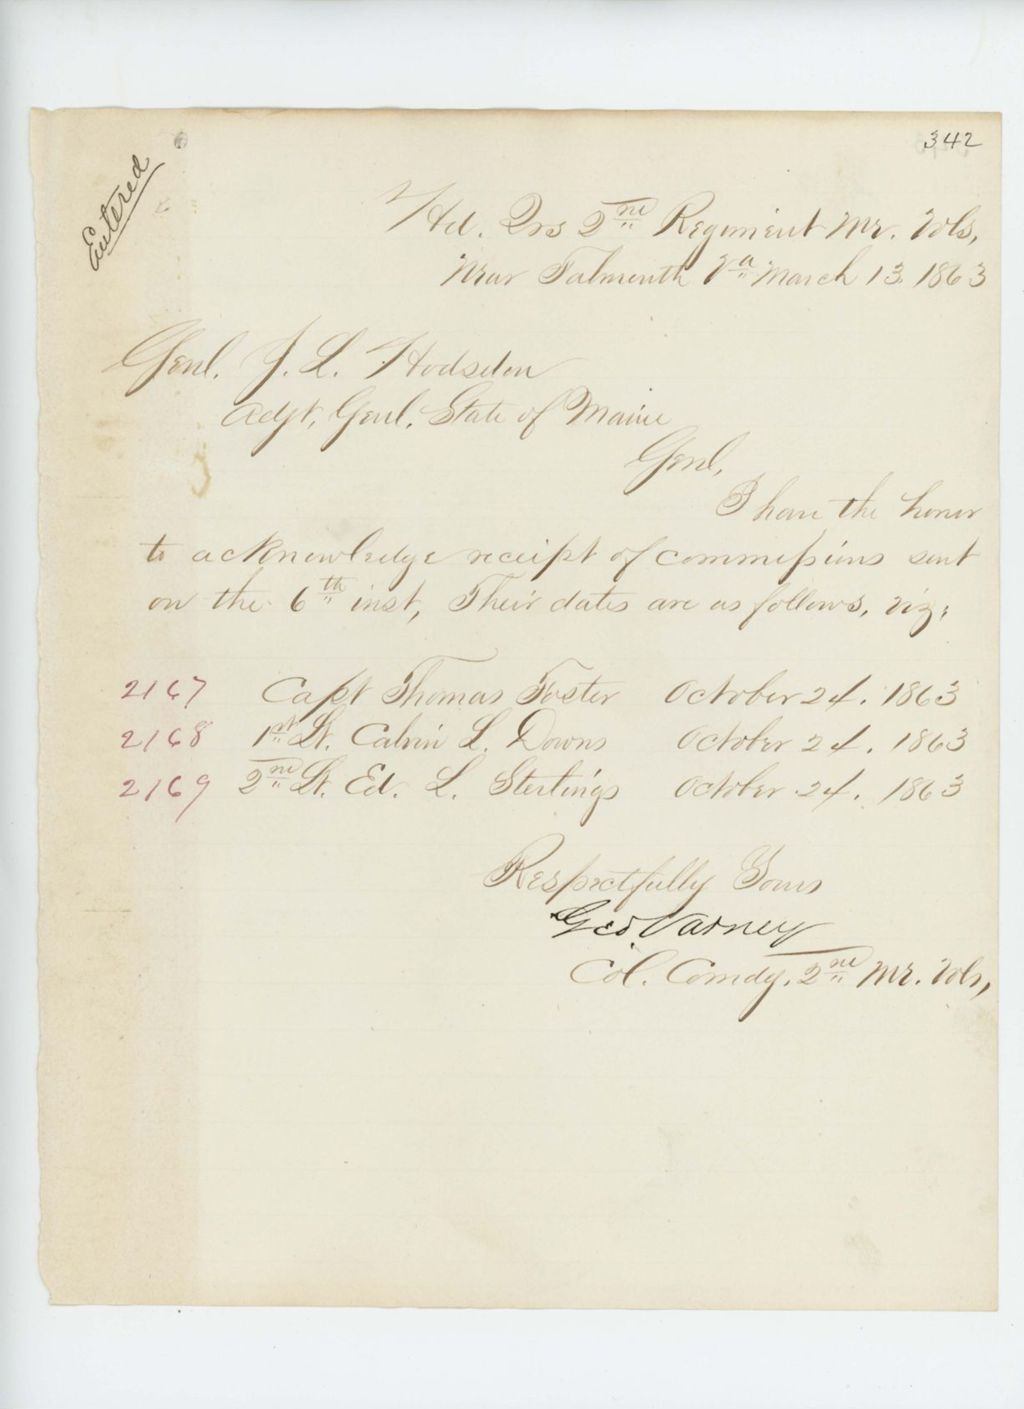 342
Entered
Hd. Qrs 2nd Regiment Me. Vols,
Near Falmouth Va March 13. 1863
Genl. J. L. Hodsdon
Adjt, Genl. State of Maine
Genl,
I have the honor
to acknowledge receipt of commissions sent
on the 6th inst, Their dates are as follows, viz:
2167 Capt Thomas Foster October 24. 1863
2168 1st Lt. Calvin L. Downs October 24. 1863
2169 2nd Lt. Ed. L. Sterlings October 24. 1863
Respectfully Yours
Geo Varney
Col. Comdg. 2nd Me. Vols,